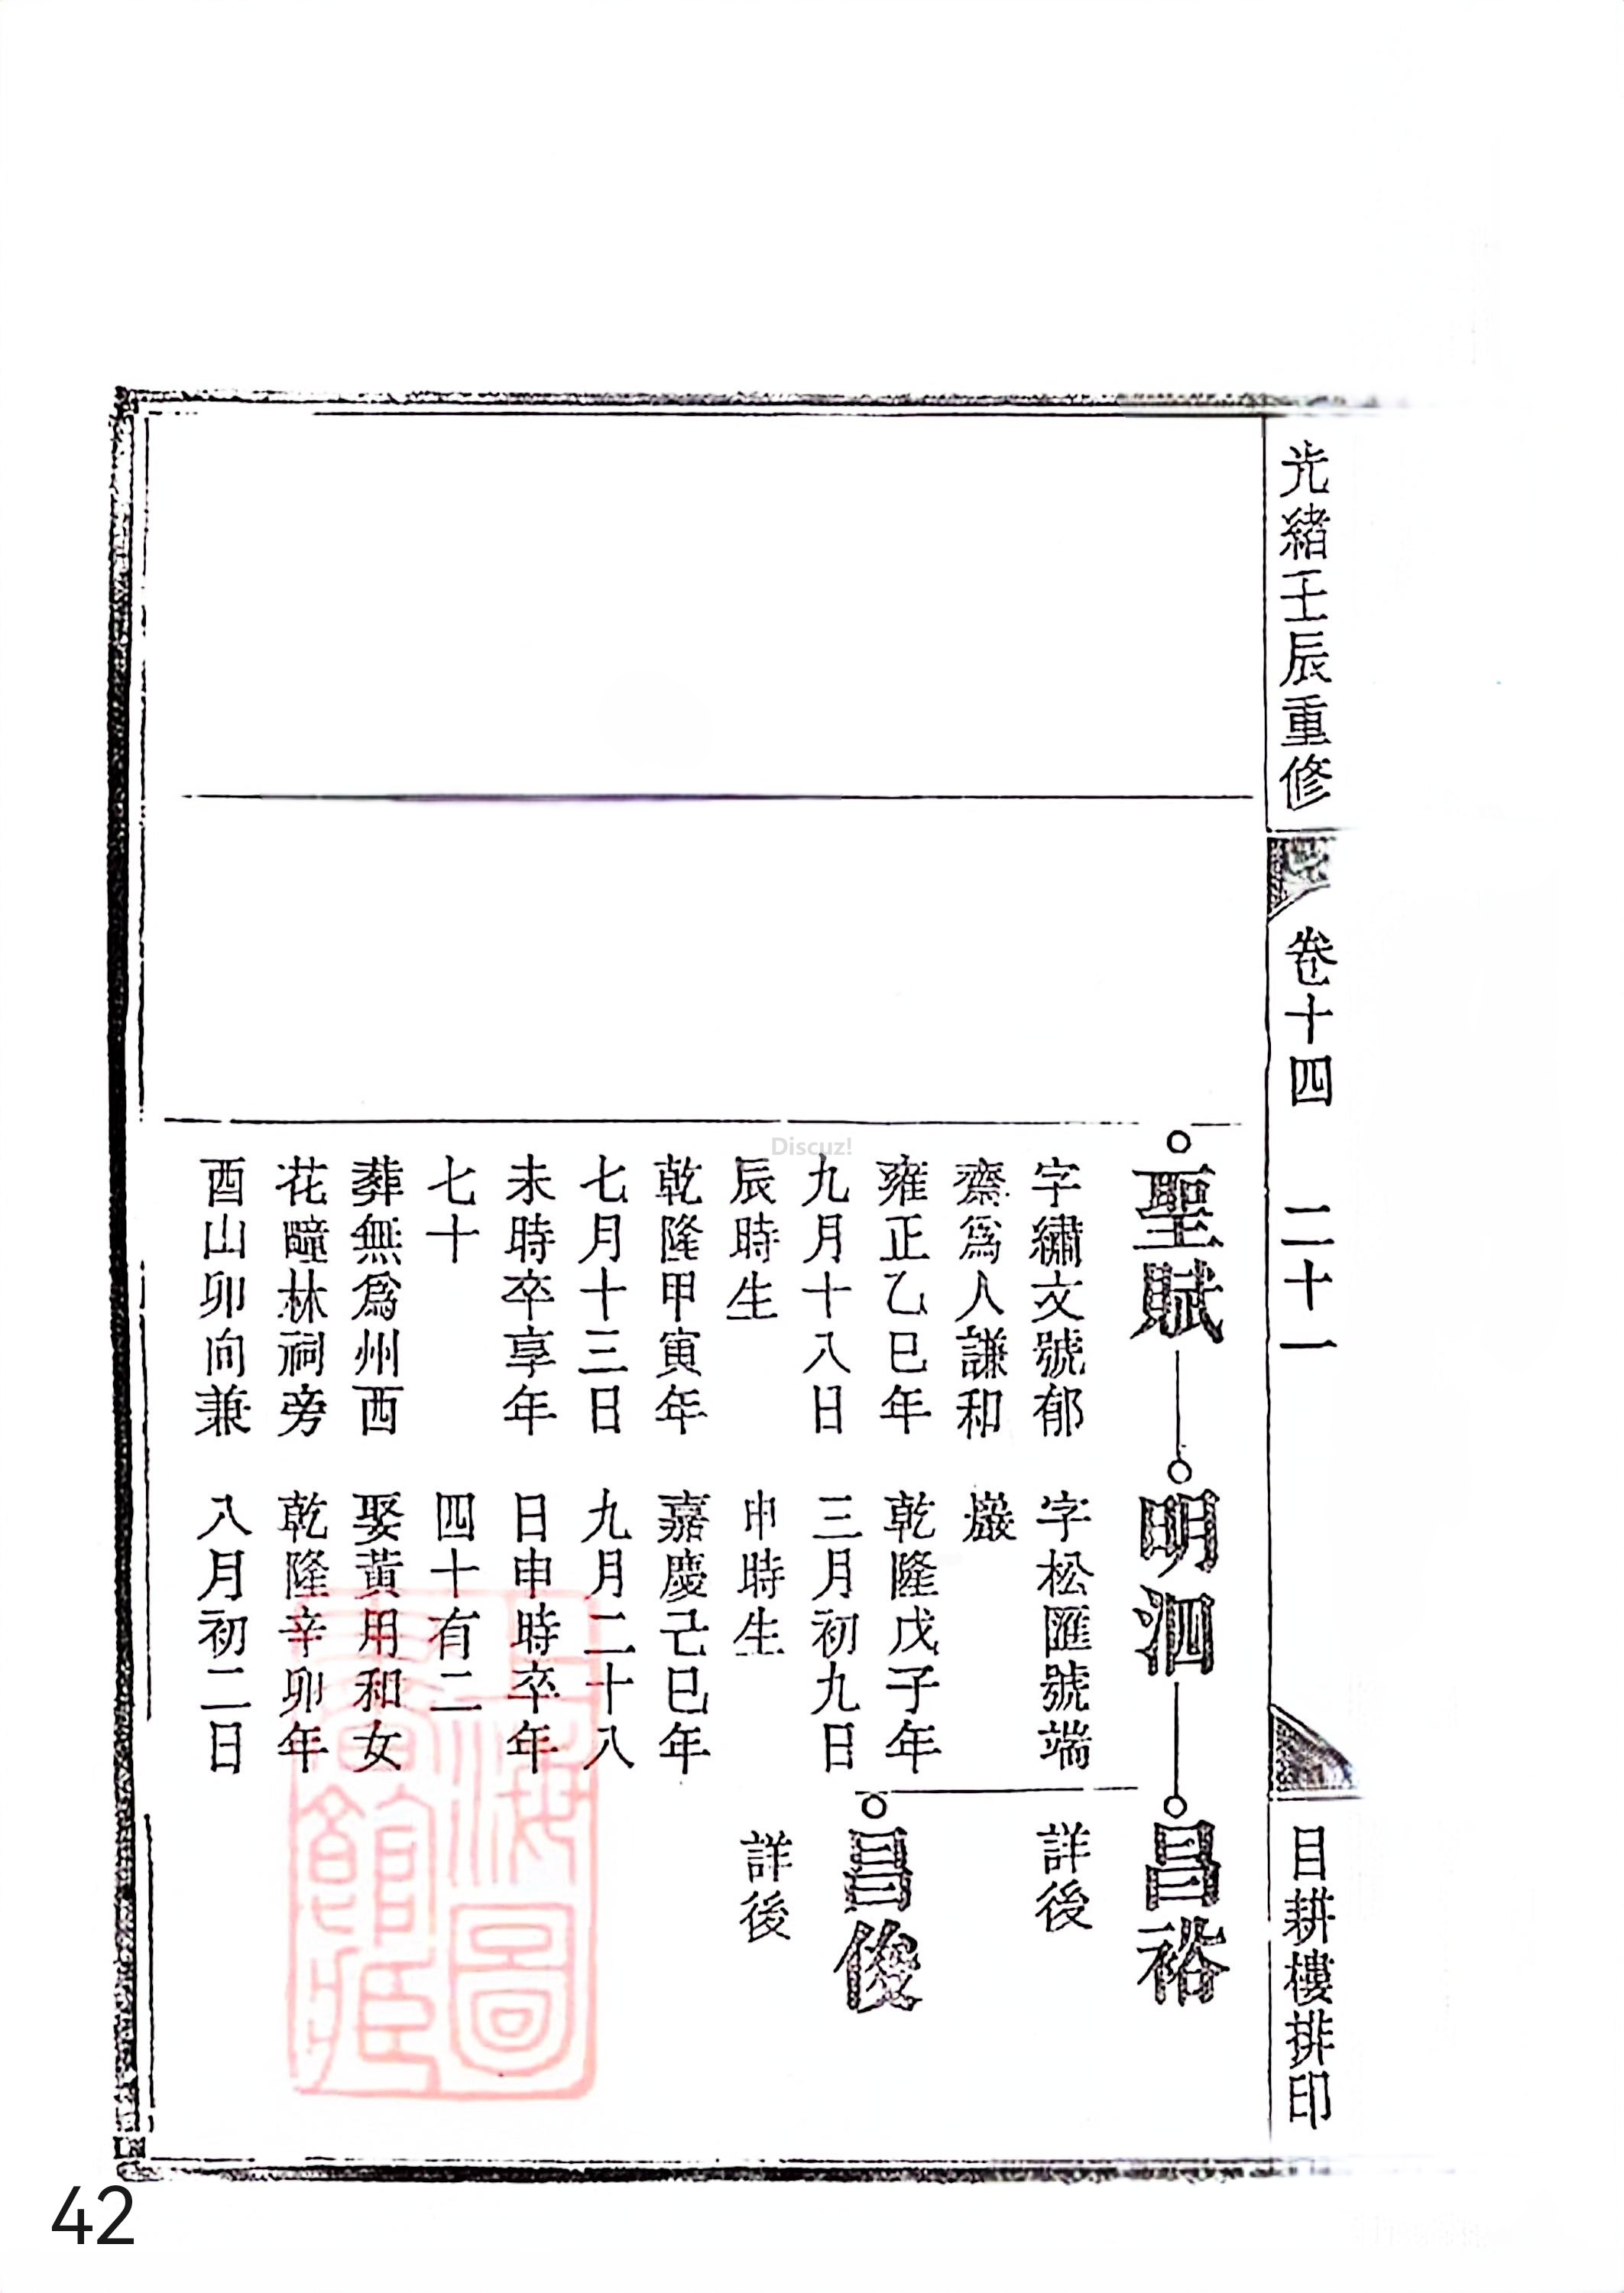 光緒壬辰重修
卷十四
二十一
目耕樓排印
聖賦
字繡文號郁
齋爲人謙和
雍正乙巳年
九月十八日
辰時生
乾隆甲寅年
七月十三日
未時卒享年
七十
葬無爲州西
花疃林祠旁
酉山卯向兼
明泗
字松匯號端
巖
乾隆戊子年
三月初九日
申時生
嘉慶己巳年
九月二十八
日申時卒年
四十有二
娶黃用和女
乾隆辛卯年
八月初二日
昌裕
詳後
昌俊
詳後
Discuz!
42